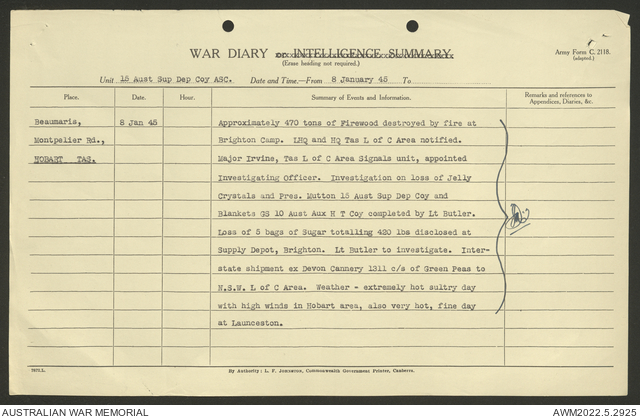 WAR DIARY or INTELLIGENCE SUMMARY.
(Erase heading not required.)
Army Form C. 2118.
(adapted.)
Unit 15 Aust Sup Dep Coy ASC. Date and Time.—From 8 January 45 To
Place. Date. Hour. Summary of Events and Information. Remarks and references to Appendices, Diaries, &c.
Beaumaris, 8 Jan 45 Approximately 470 tons of Firewood destroyed by fire at
Montpelier Rd., Brighton Camp. LHQ and HQ Tas L of C Area notified.
HOBART TAS. Major Irvine, Tas L of C Area Signals unit, appointed
Investigating Officer. Investigation on loss of Jelly
Crystals and Pres. Mutton 15 Aust Sup Dep Coy and
Blankets GS 10 Aust Aux H T Coy completed by Lt Butler.
Loss of 5 bags of Sugar totalling 420 lbs disclosed at
Supply Depot, Brighton. Lt Butler to investigate. Inter-
state shipment ex Devon Cannery 1311 c/s of Green Peas to
N.S.W. L of C Area. Weather - extremely hot sultry day
with high winds in Hobart area, also very hot, fine day
at Launceston.
By Authority: L. F. Johnston, Commonwealth Government Printer, Canberra.
AUSTRALIAN WAR MEMORIAL
AWM2022.5.2925